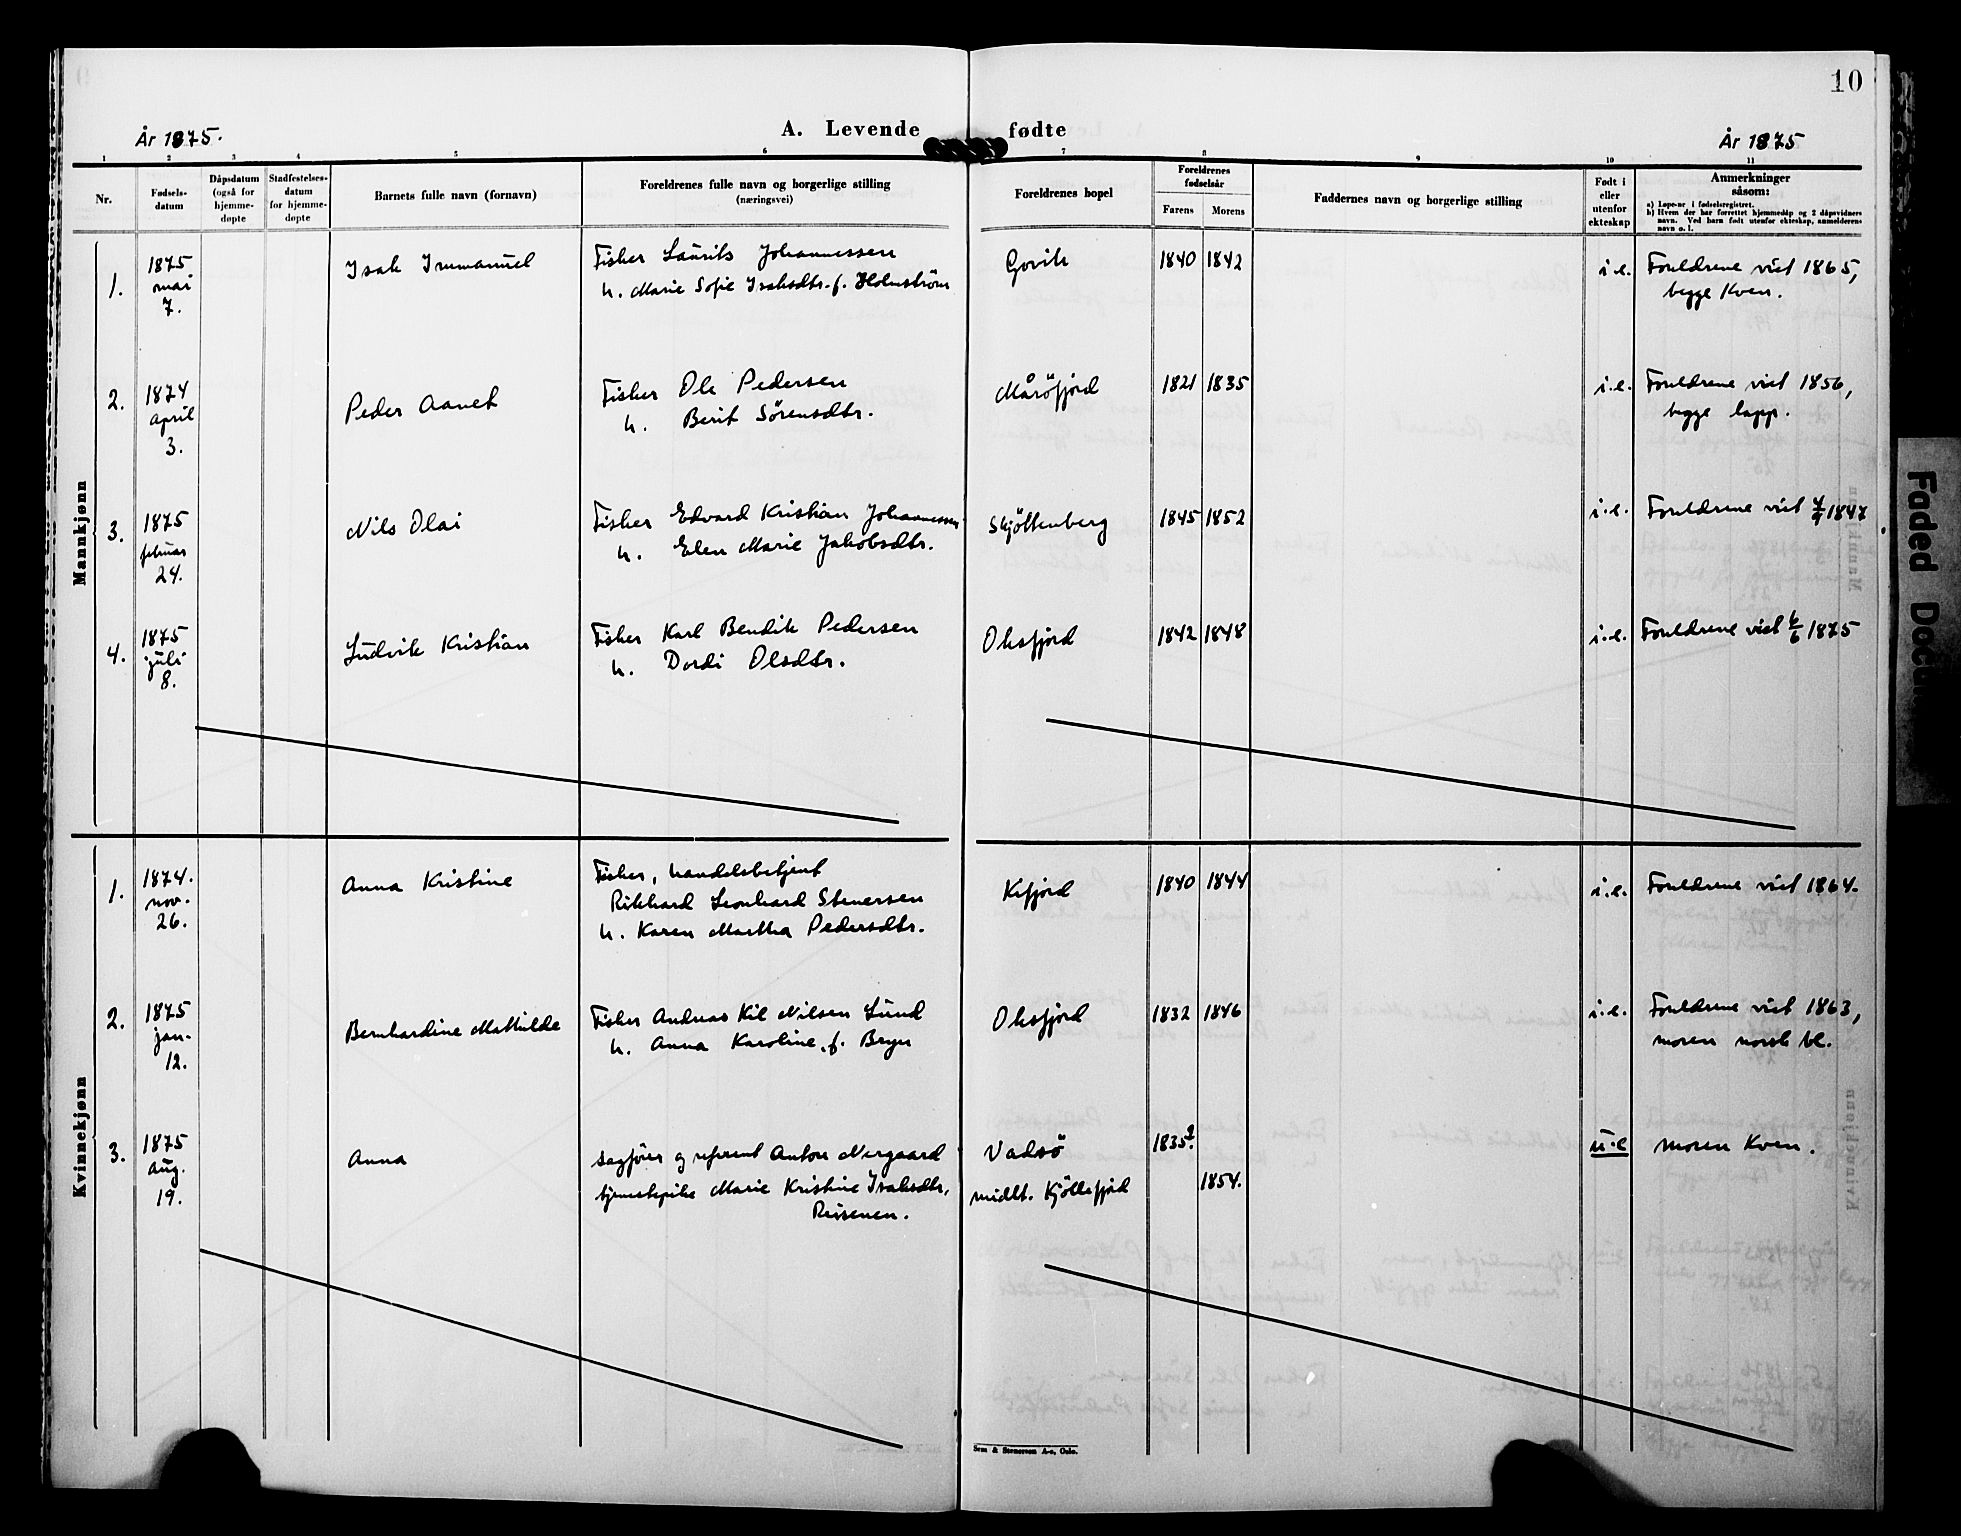 10
År 1875.
A. Levende fødte
År 1875
1 2 3 4 5 6 7 8 9 10 11
Nr.
Fødsels-
datum
Dåpsdatum
(også for
hjemme-
døpte
Stadfestelses-
datum
for hjemme-
døpte
Barnets fulle navn (fornavn)
Foreldrenes fulle navn og borgerlige stilling
(næringsvei)
Foreldrenes bopel
Foreldrenes
fødselsår
Farens Morens
Faddernes navn og borgerlige stilling
Født i
eller
utenfor
ekteskap
Anmerkninger
såsom:
a) Løpe-nr i fødselsregistret.
b) Hvem der har forrettet hjemmedåp og 2 dåpsvidners
navn. Ved barn født utenfor ekteskap, anmelderens
navn o. l.
Mannkjønn
1.
1875
mai
7.
Isak Immanuel
Fisker Laurits Johannessen
h. Marie Sofie Isaksdtr. f. Holmstrøm
Govik
1840 1842
i.e.
Foreldrene viet 1865,
begge Kven.
2.
1874
april
3.
Peder Aanet
Fisker Ole Pedersen
h. Berit Sørensdtr.
Måröfjord
1821 1835
i.e.
Foreldrene viet 1856,
begge lapp.
3.
1875
februar
24.
Nils Olai
Fisker Edvard Kristian Johannessen
h. Elen Marie Jakobsdtr.
Skjöttenberg
1845 1852
i.e.
Foreldrene viet 4/9 1847
4.
1875
juli
8.
Ludvik Kristian
Fisker Karl Bendik Pedersen
h. Dordi Olsdtr.
Oksfjord
1842 1848
i.e.
Foreldrene viet 6/6 1875
Kvinnekjønn
1.
1874.
nov.
26.
Anna Kristine
Fisker, handelsbetjent
Rikhard Leonhard Stenersen
h. Karen Martha Pedersdtr.
Kifjord
1840 1844
i.e.
Foreldrene viet 1864.
2.
1875
jan.
12.
Bernhardine Mathilde
Fisker Andreas Kil Nilsen Lund
h. Anna Karoline, f. Bryn
Oksfjord
1832 1846
i.e.
Foreldrene viet 1863,
moren norsk bl.
3.
1875
aug.
19.
Anna
sagfører og referent Anton Nergaard
tjenestepike Marie Kristine Isaksdtr,
Reisenen.
Vadsö
midlt. Kjöllefjord
1835?
1854.
u.e
moren Kven.
Sem & Stenersen A-s, Oslo.
Faded